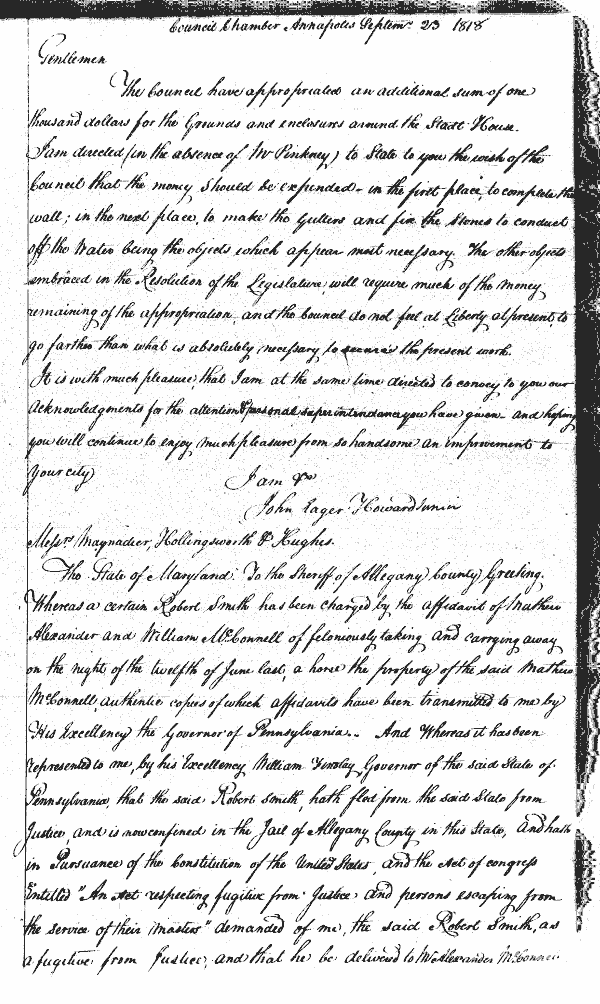 Council Chamber Annapolis Septemr 23 1818
Gentlemen
The Council have appropriated an additional sum of one
thousand dollars for the Grounds and enclosures around the Stadt House.
I am directed (in the absence of Mr Pinkney) to State to you the wish of the
Council that the money should be expended - in the first place, to complete the
wall; in the next place, to make the Gutters and fix the stones to conduct
off the Water being the objects which appear most necessary. The other objects
embraced in the Resolution of the Legislature, will require much of the money
remaining of the appropriation, and the Council do not feel at Liberty at present, to
go farther than what is absolutely necessary to secure the present work.
It is with much pleasure, that I am at the same time directed to convey to you our
Acknowledgments for the attention & personal superintendance you have given - and hoping
you will continue to enjoy much pleasure from so handsome an improvement to
your city
I am &c
John Eager Howard Junior
Messrs Maynadier, Hollingsworth & Hughes.
The State of Maryland. To the Sheriff of Allegany County Greeting.
Whereas a certain Robert Smith has been charged by the affidavit of Mathew
Alexander and William McConnell of feloniously taking and carrying away
on the night of the twelfth of June last, a horse the property of the said Mathew
McConnell authentic copies of which affidavits have been transmitted to me by
His Excellency the Governor of Pennsylvania.. And Whereas it has been
represented to me, by his Excellency William Findlay Governor of the said State of
Pennsylvania, that the said Robert Smith, hath fled from the said State from
Justice, and is now confined in the Jail of Allegany County in this State, And hath
in Pursuance of the Constitution of the United States, and the Act of congress
Entitled "An Act respecting fugitive from Justice and persons escaping from
the service of their masters" demanded of me, the said Robert Smith, as
a fugitive from Justice, and that he be delivered to Wm Alexander McConnell